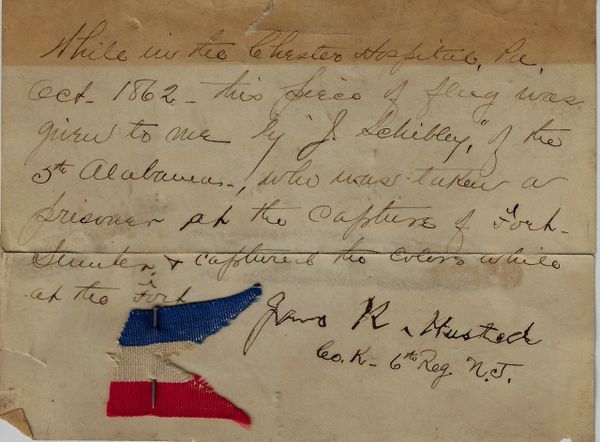 While in the Chester Hospital, Pa,
Oct. 1862 - this piece of flag was
given to me by "J. Schibley," of the
5th Alabama -, who was taken a
prisoner at the capture of Fort
Sumter, & captured the colors while
at the Fort
James R. Husted
Co. K - 6th Reg. N.J.